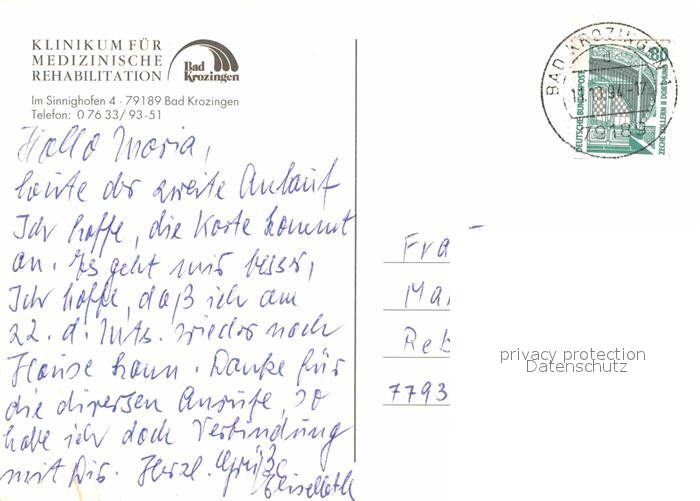 KLINIKUM FÜR
MEDIZINISCHE
REHABILITATION
Bad
Krozingen
Im Sinnighofen 4 · 79189 Bad Krozingen
Telefon: 0 76 33/ 93-51
Hallo Maria,
heute der zweite Anlauf
Ich hoffe, die Karte kommt
an. Es geht mir besser,
Ich hoffe, daß ich am
22. d. Mts. wieder nach
Hause kann. Danke für
die diversen Anrufe, so
habe ich doch Verbindung
mit Dir. Herzl. Grüße
Liselotte
BAD KROZINGEN
79189
80
DEUTSCHE BUNDESPOST
ZECHE ZOLLERN II DORTMUND
Fra
Mar
Reb
7793
privacy protection
Datenschutz